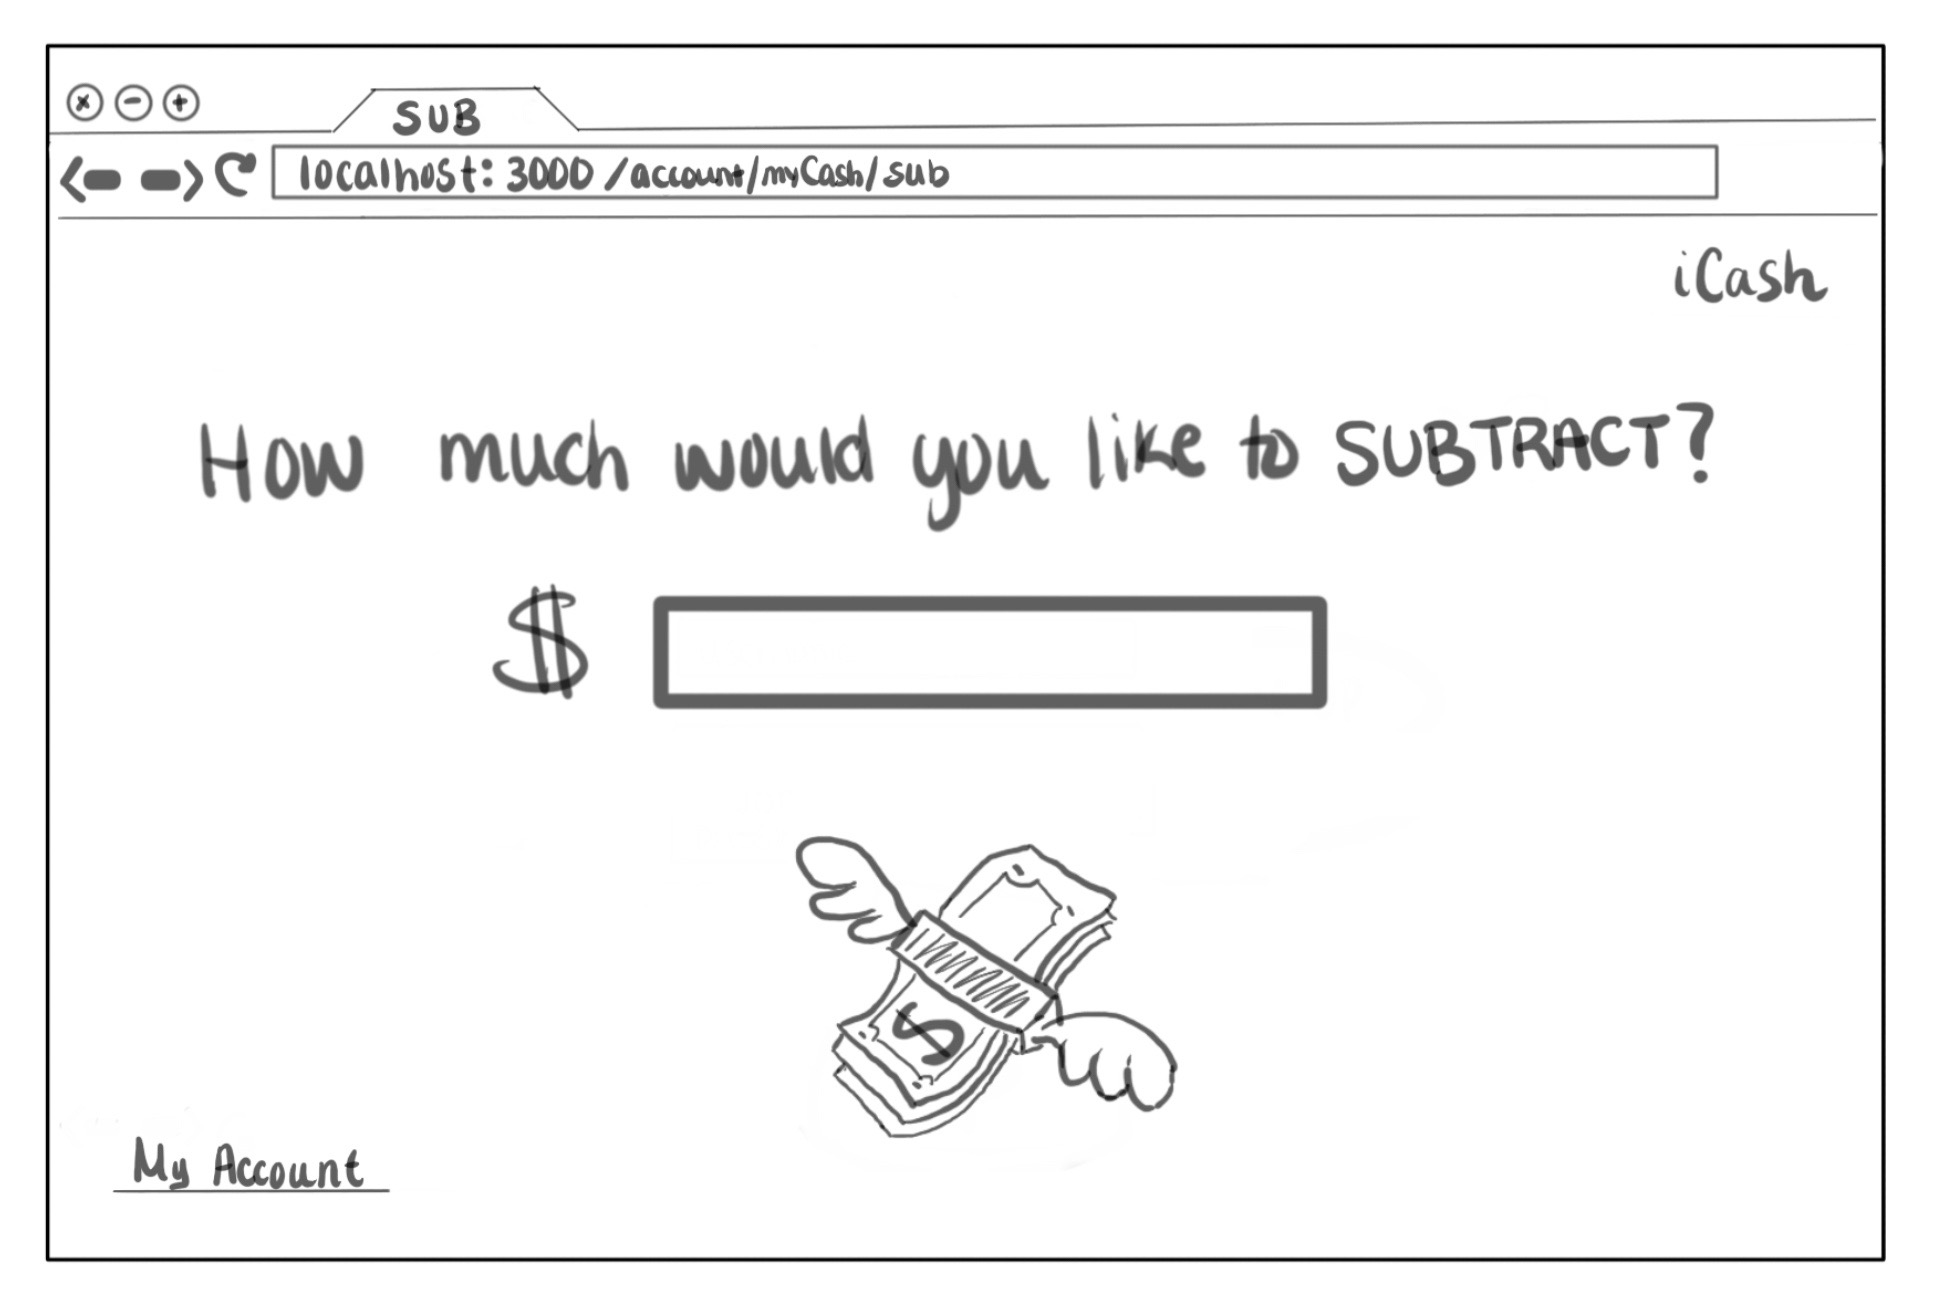 SUB
localhost:3000/account/myCash/sub
iCash
How much would you like to SUBTRACT?
$
$
My Account